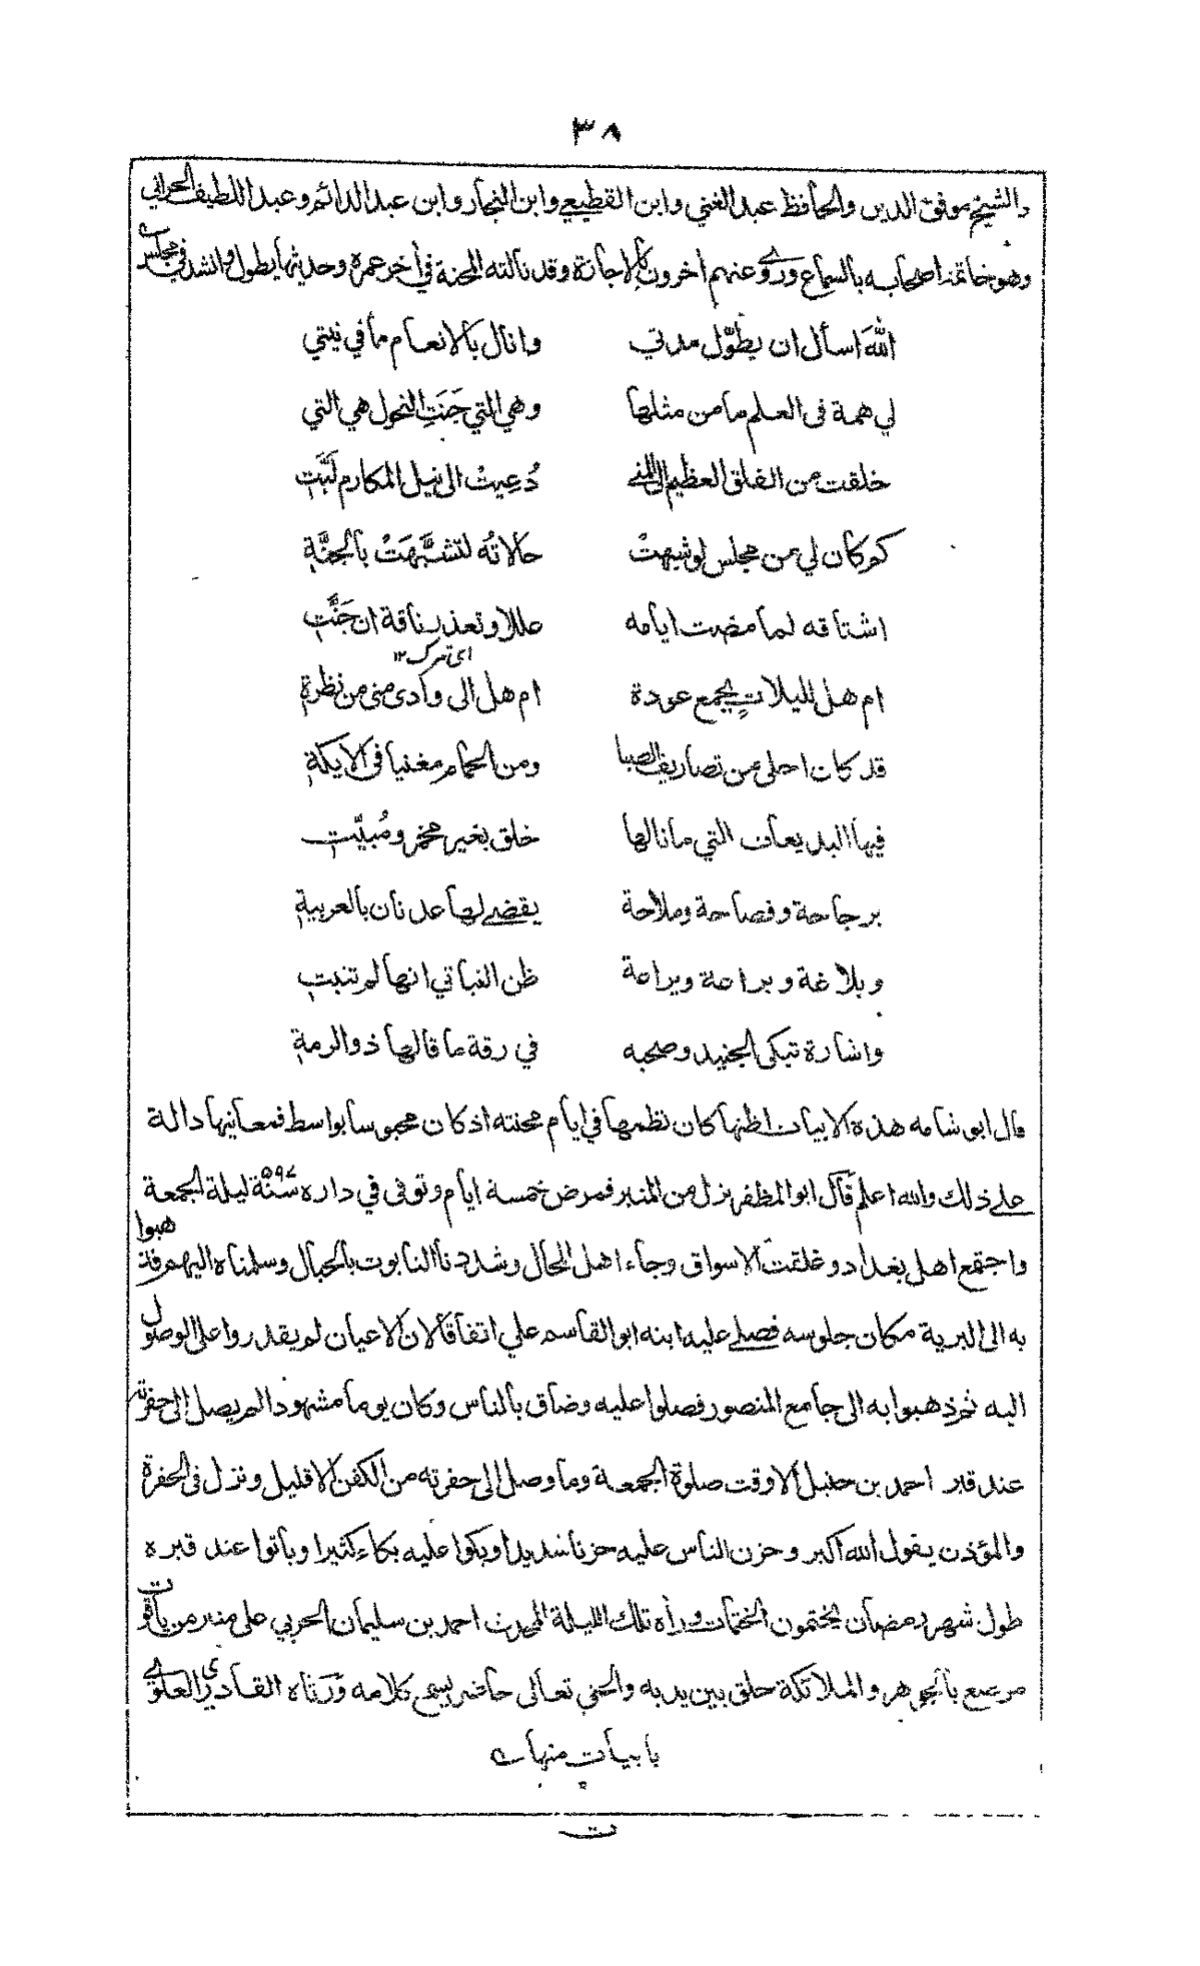 ٣٨
والشيخ موفق الدين والحافظ عبد الغني وابن القطيعي وابن النجار وابن عبد الدائم وعبد اللطيف الحراني
وهو خاتمة اصحابه بالسماع وروى عنهم اخرون بالاجازة وقد نالته المحنة في أخر عمره وحديثها يطول وانشد في مجلس
اللهَ اسأل ان يطوّل مدتي وانال بالانعام ما في نيتي
لي همة فى العلم ما من مثلها وهي التي جَنَتِ النحول هي التي
خلقت من الفلق العظيم الى المنى دُعِيتْ الى نيل المكارم لَبَّتِ
كم كان لي من مجلس لو شبهتْ حالاتُه لتشبَّهَتْ بالجنَّةِ
اشتاقه لما مضت ايامه عللا وتعذر ناقة ان حَنَّتِ
اى ترك ١٢
ام هل لليلاتٍ بجمع عودة ام هل الى وادى منى من نظرةِ
قد كان احلى من تصاريف الصبا ومن الحمام مغنيا فى الايكةِ
فيها البديهات التي ما نالها خلق بغير مخمر ومُبيّتِ
برجاحة وفصاحة وملاحة يقضى لها عدنان بالعربيةِ
وبلاغة وبراعة ويراعة ظن النباتي انها لم تنبتِ
واشارة تبكى الجنيد وصحبه في رقة ما قالها ذو الرمةِ
قال ابو شامه هذه الابيات اظنها كان نظمها في ايام محنته اذ كان محبوسا بواسط فمعانيها دالة
على ذلك والله اعلم قال ابو المظفر نزل من المنبر فمرض خمسة ايام وتوفى في داره سنة ٥٩٧ ليلة الجمعة
واجتمع اهل بغداد وغلقت الاسواق وجاء اهل المحال وشددنا التابوت بالحبال وسلمناه اليهم فذهبوا
به الى البرية مكان جلوسه فصلى عليه ابنه ابو القاسم علي اتفاقا لان الاعيان لم يقدروا على الوصول
اليه ثم ذهبوا به الى جامع المنصور فصلوا عليه وضاق بالناس وكان يوما مشهودا لم يصل الى حفرته
عند قبر احمد بن حنبل الا وقت صلوة الجمعة وما وصل الى حفرته من الكفن الا قليل ونزل فى الحفرة
والمؤذن يقول الله اكبر وحزن الناس عليه حزنا شديدا وبكوا عليه بكاء كثيرا وباتوا عند قبره
طول شهر رمضان يختمون الختمات وراه تلك الليلة المحدث احمد بن سليمان الحربي على منبر من ياقوت
مرصع بالجوهر والملائكة حلق بين يديه والحق تعالى حاضر يسمع كلامه ورثاه القادري العلوى
بابيات منها